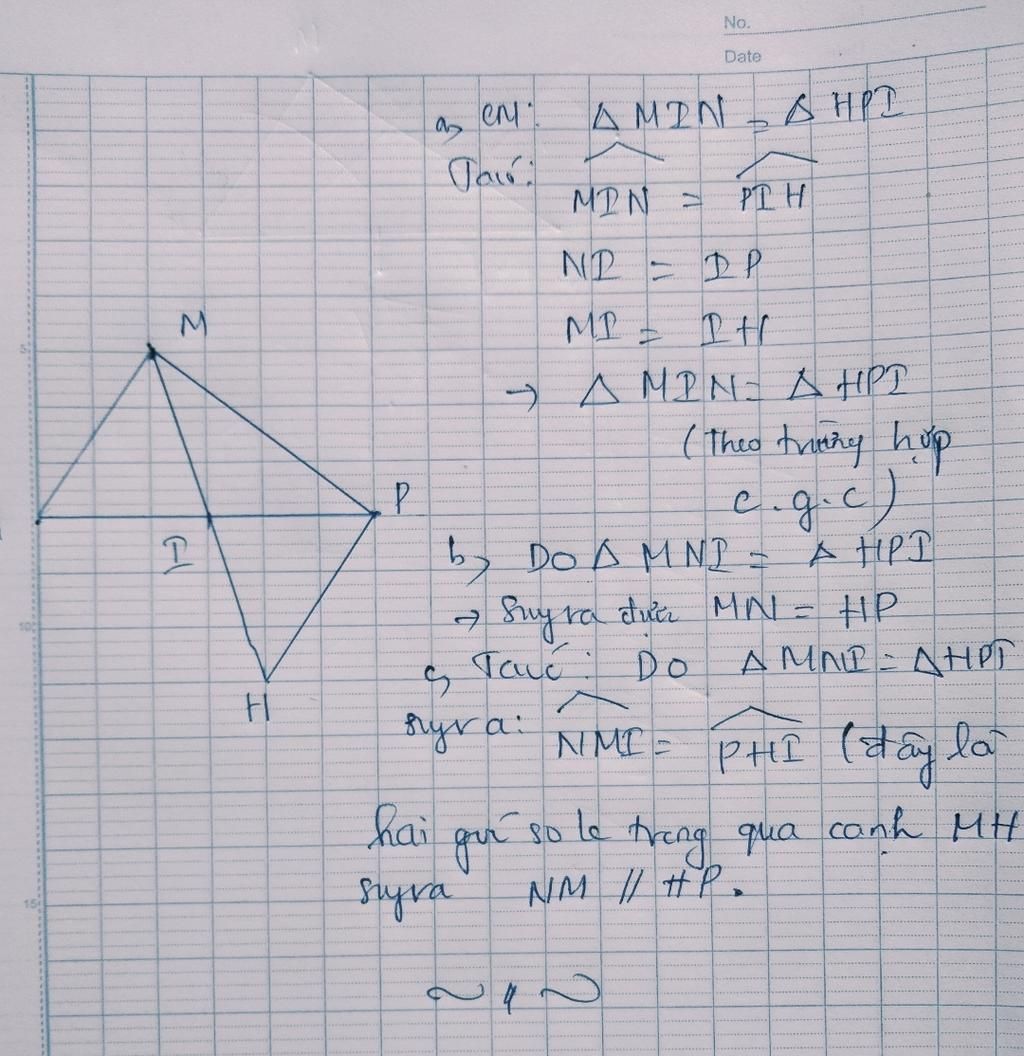 No.
Date
a, CM: Δ MIN = Δ HPI
Ta có:
MIN = PIH
NI = IP
MI = IH
→ Δ MIN = Δ HPI
(Theo trường hợp
c.g.c)
M
P
I
H
b, Do Δ MNI = Δ HPI
→ Suy ra được MN = HP
c, Ta có: Do Δ MNI = Δ HPI
suy ra: NMI = PHI (đây là
hai góc so le trong qua cạnh MH
suy ra NM // HP.
5
10
15